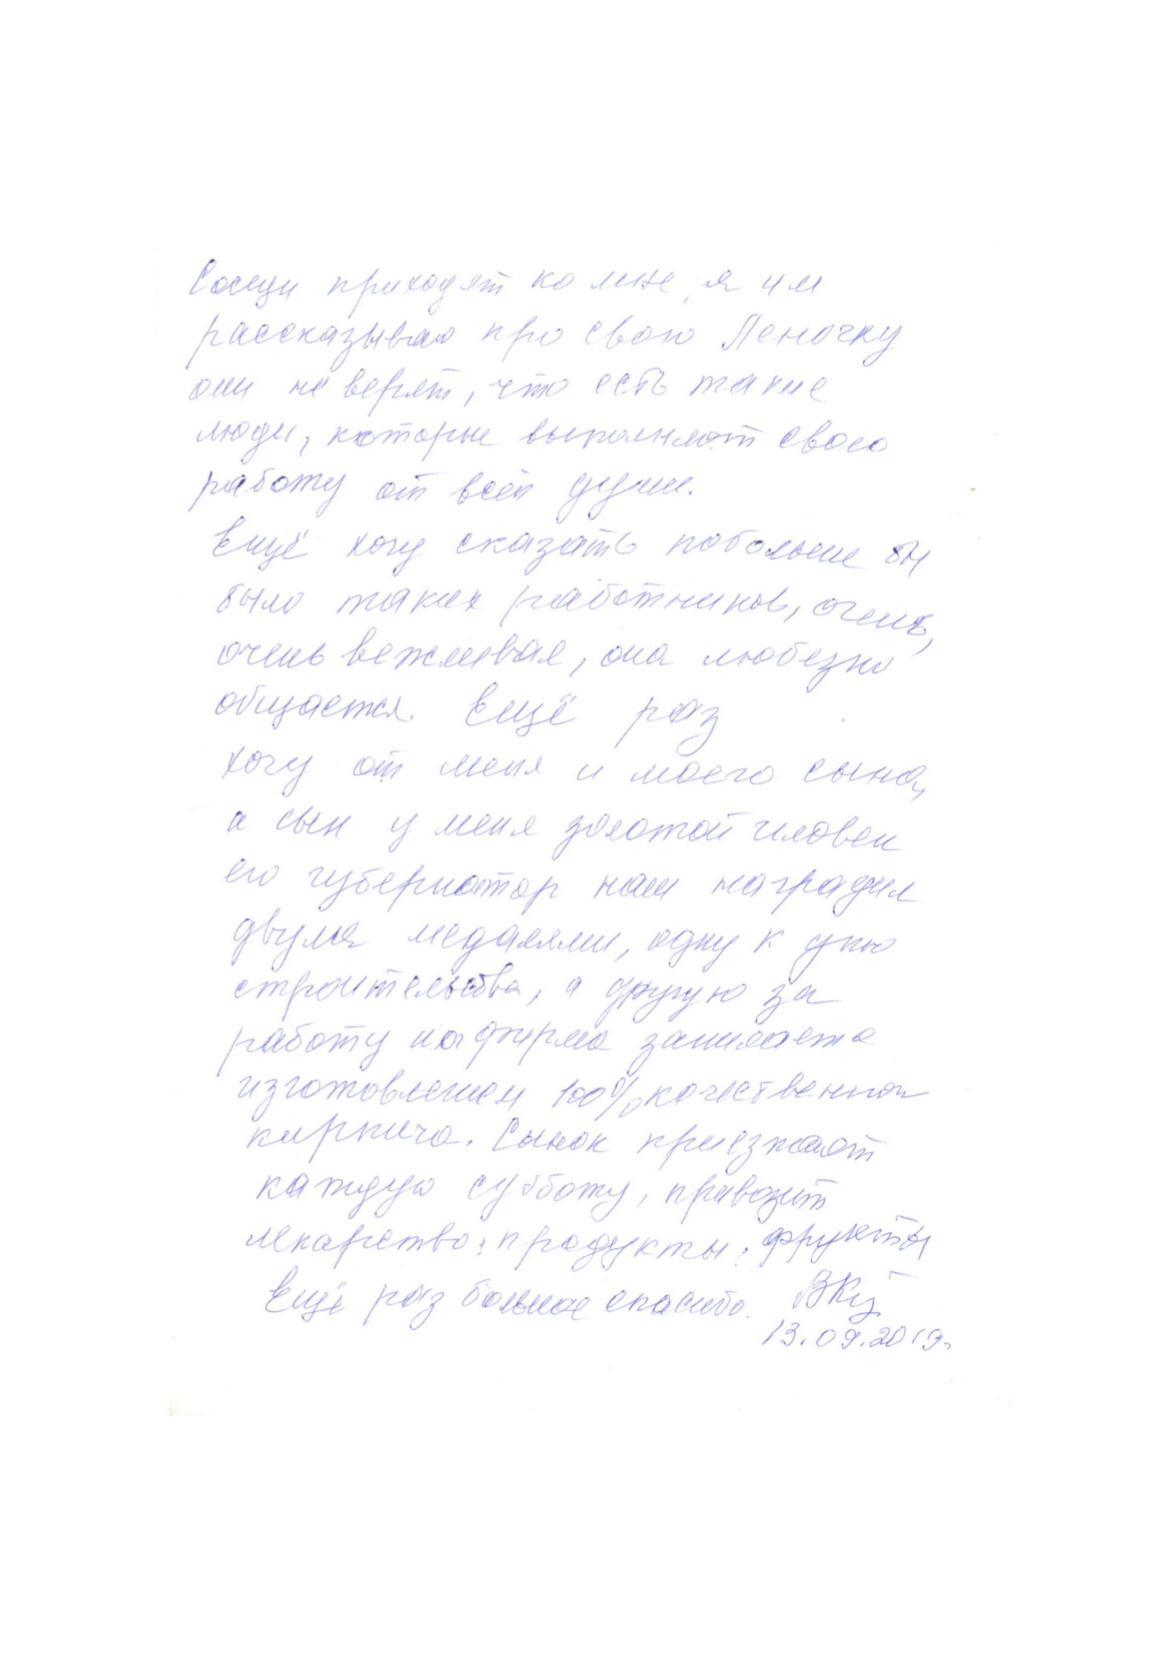 Соседи приходят ко мне, я им
рассказываю про свою Леночку
они не верят, что есть такие
люди, которые выполняют свою
работу от всей души.
Ещё хочу сказать побольше бы
было таких работников, очень,
очень вежливая, она любезно
общается. Ещё раз
хочу от меня и моего сына,
а сын у меня золотой человек
его губернатор наш наградил
двумя медалями, одну к дню
строительства, а другую за
работу фирма
изготовлением 100% качественного
кирпича. Сынок приезжает
каждую субботу, привозит
лекарство, продукты, фрукты
Ещё раз большое спасибо.
13.09.2019г.